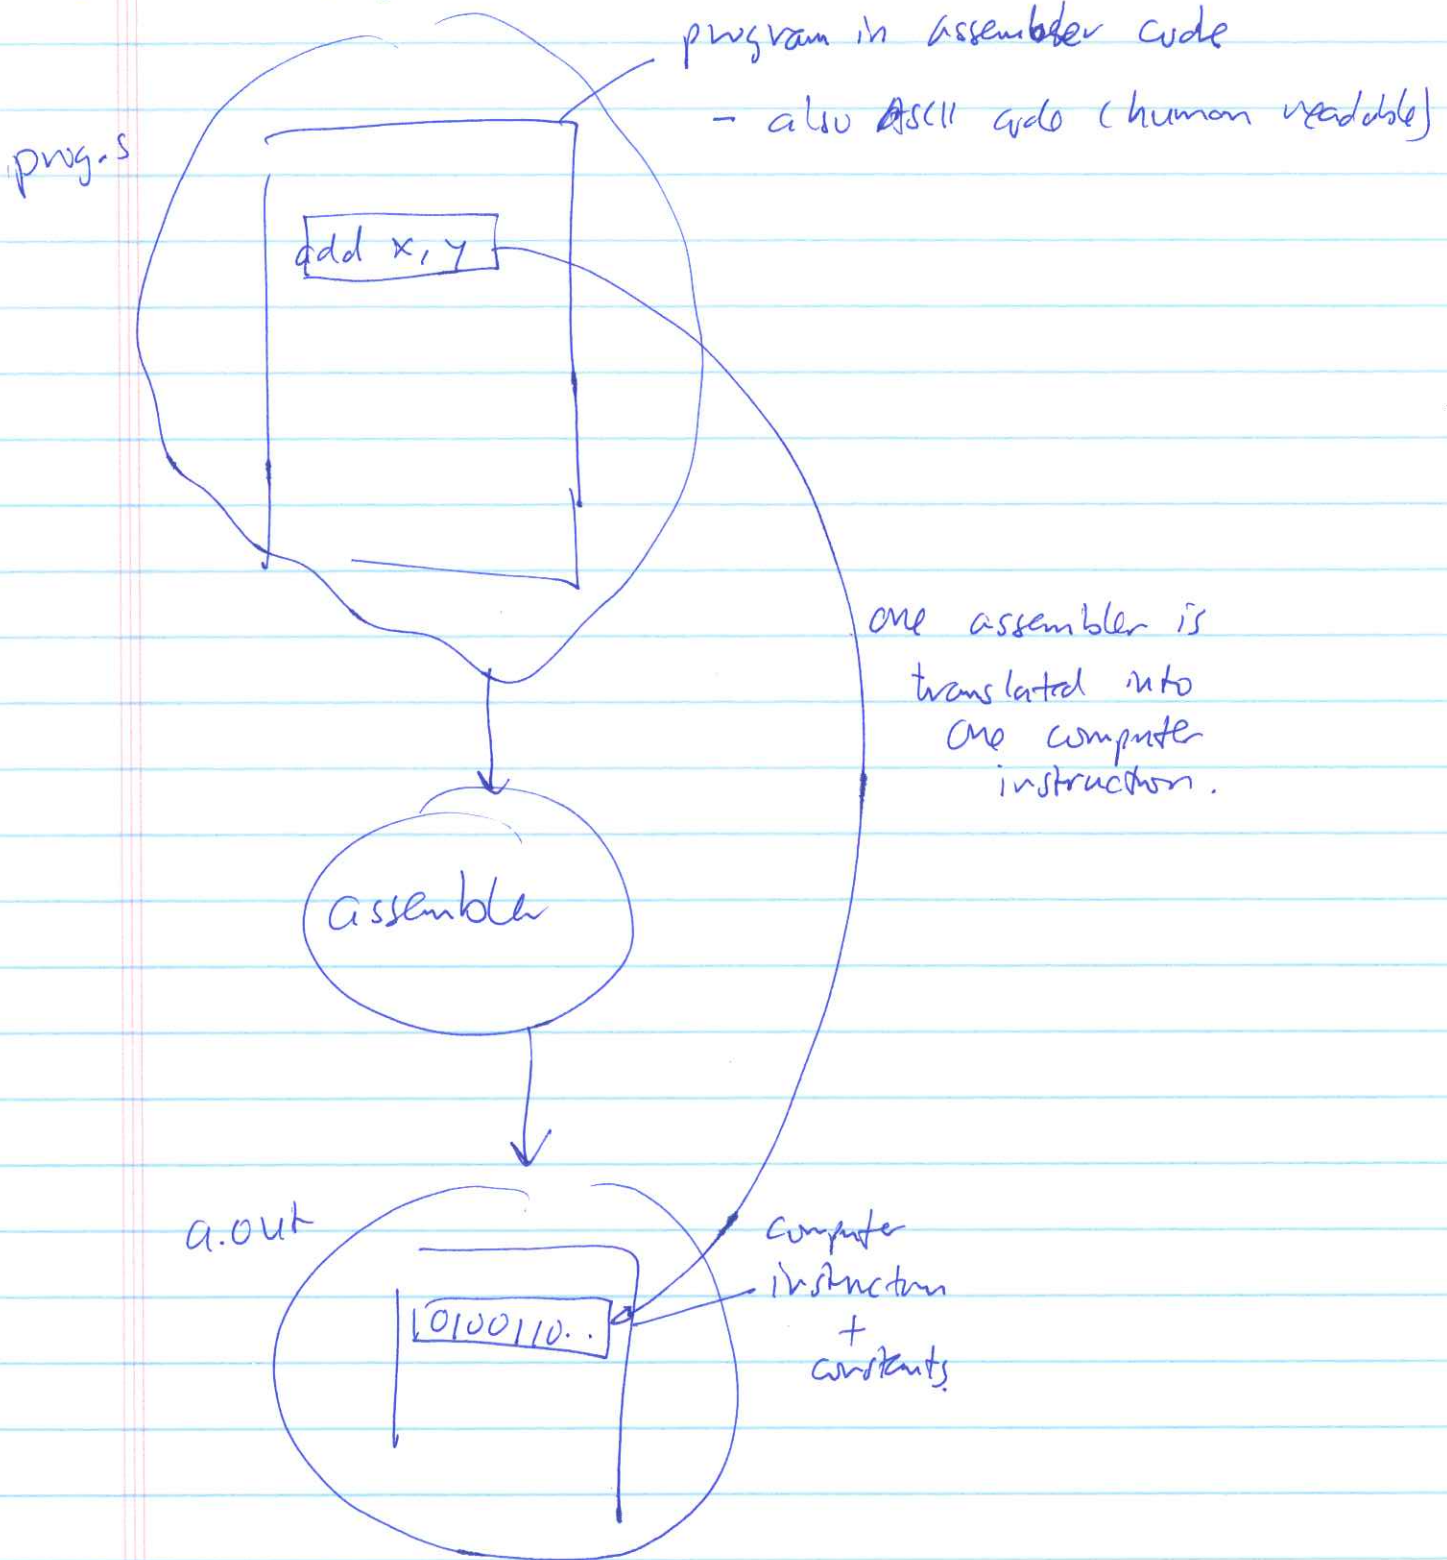 program in assembler code
- also ASCII code (human readable)
prog.s
add x, y
one assembler is
translated into
one computer
instruction.
assembler
a.out
computer
instruction
+
constants.
10100110..